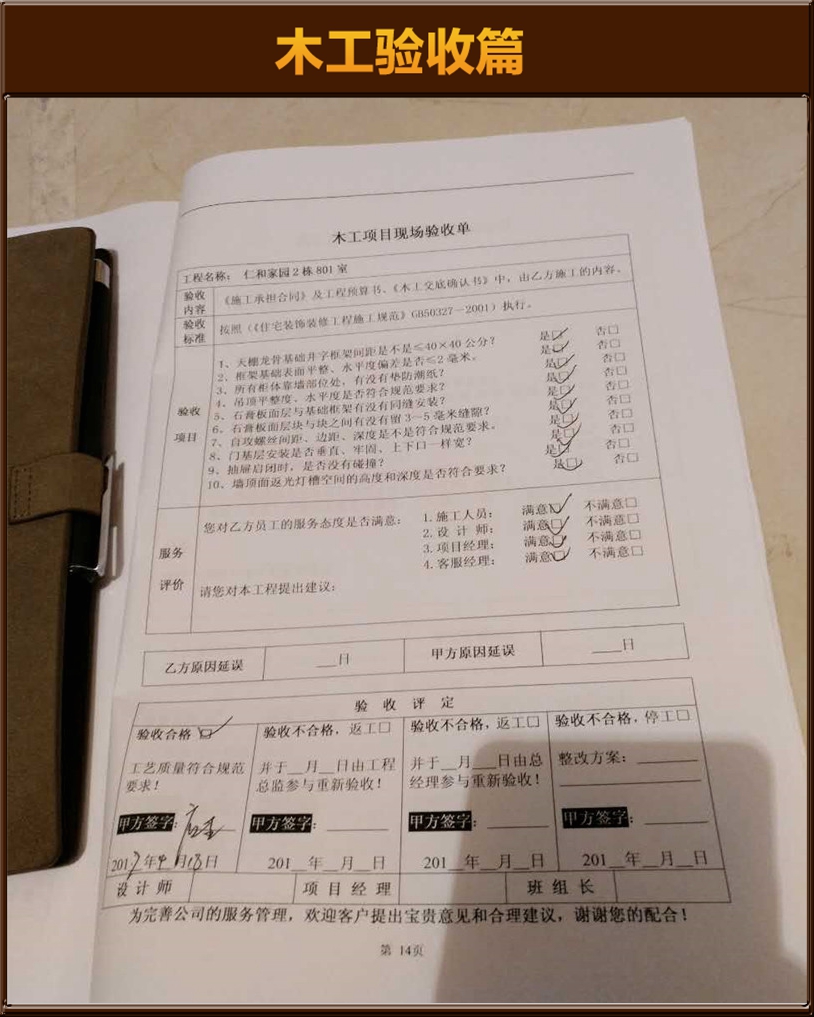 木工验收篇
木工项目现场验收单
工程名称： 仁和家园2栋801室
验收内容
《施工承担合同》及工程预算书、《木工交底确认书》中，由乙方施工的内容。
验收标准
按照（《住宅装饰装修工程施工规范》G850327－2001）执行。
验收项目
1、天棚龙骨基础井字框架间距是不是≤40×40公分？ 是□ 否□
2、框架基础表面平整、水平度偏差是否≤2毫米。 是□ 否□
3、所有柜体靠墙部位处，有没有垫防潮纸？ 是□ 否□
4、吊顶平整度、水平度是否符合规范要求？ 是□ 否□
5、石膏板面层与基础框架有没有同缝安装？ 是□ 否□
6、石膏板面层块与块之间有没有留3－5毫米缝隙？ 是□ 否□
7、自攻螺丝间距、边距、深度是不是符合规范要求。 是□ 否□
8、门基层安装是否垂直、牢固、上下口一样宽？ 是□ 否□
9、抽屉启闭时，是否没有碰撞？ 是□ 否□
10、墙顶面返光灯槽空间的高度和深度是否符合要求？ 是□ 否□
服务评价
您对乙方员工的服务态度是否满意： 1.施工人员： 满意□ 不满意□
2.设 计 师： 满意□ 不满意□
3.项目经理： 满意□ 不满意□
4.客服经理： 满意□ 不满意□
请您对本工程提出建议：
乙方原因延误 __日 甲方原因延误 __日
验 收 评 定
验收合格□ 验收不合格，返工□ 验收不合格，返工□ 验收不合格，停工□
工艺质量符合规范要求！
并于__月__日由工程总监参与重新验收！
并于__月__日由总经理参与重新验收！
整改方案：
甲方签字： 甲方签字： 甲方签字： 甲方签字：
2017年9月18日 201__年__月__日 201__年__月__日 201__年__月__日
设计师 项目经理 班组长
为完善公司的服务管理，欢迎客户提出宝贵意见和合理建议，谢谢您的配合！
第 14页